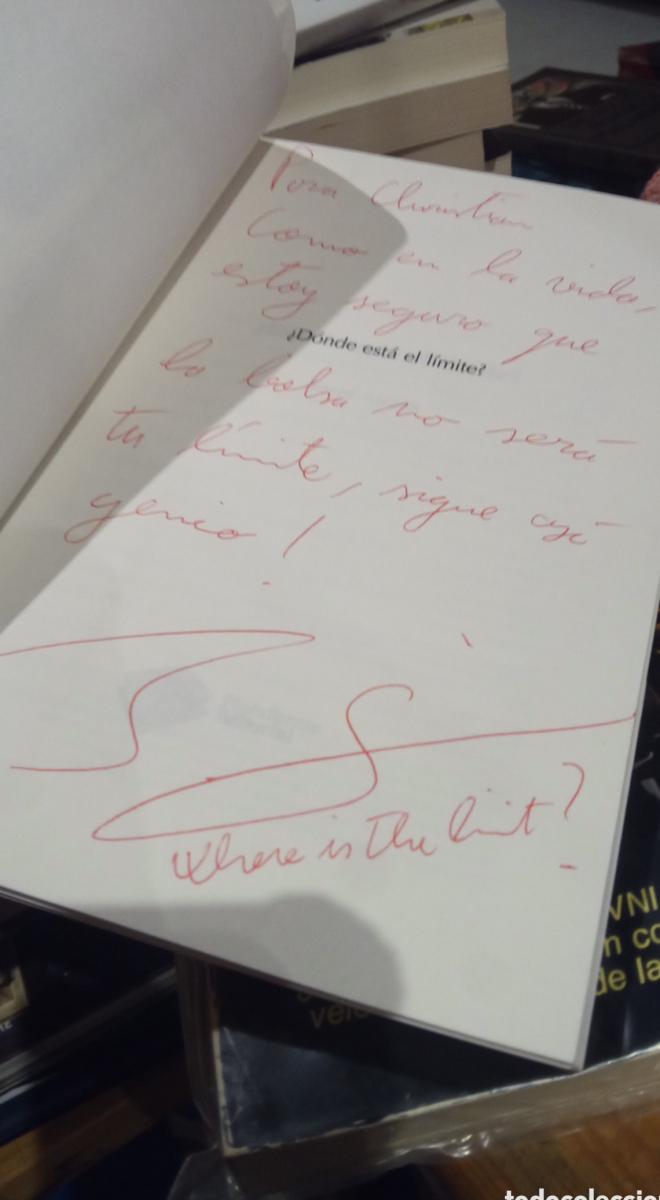 Para Christian
Como en la vida,
estoy seguro que
¿Dónde está el límite?
la bolsa no será
tu límite, sigue así
genio!
Where is the limit?
VNI
n co
de la
todocoleccio